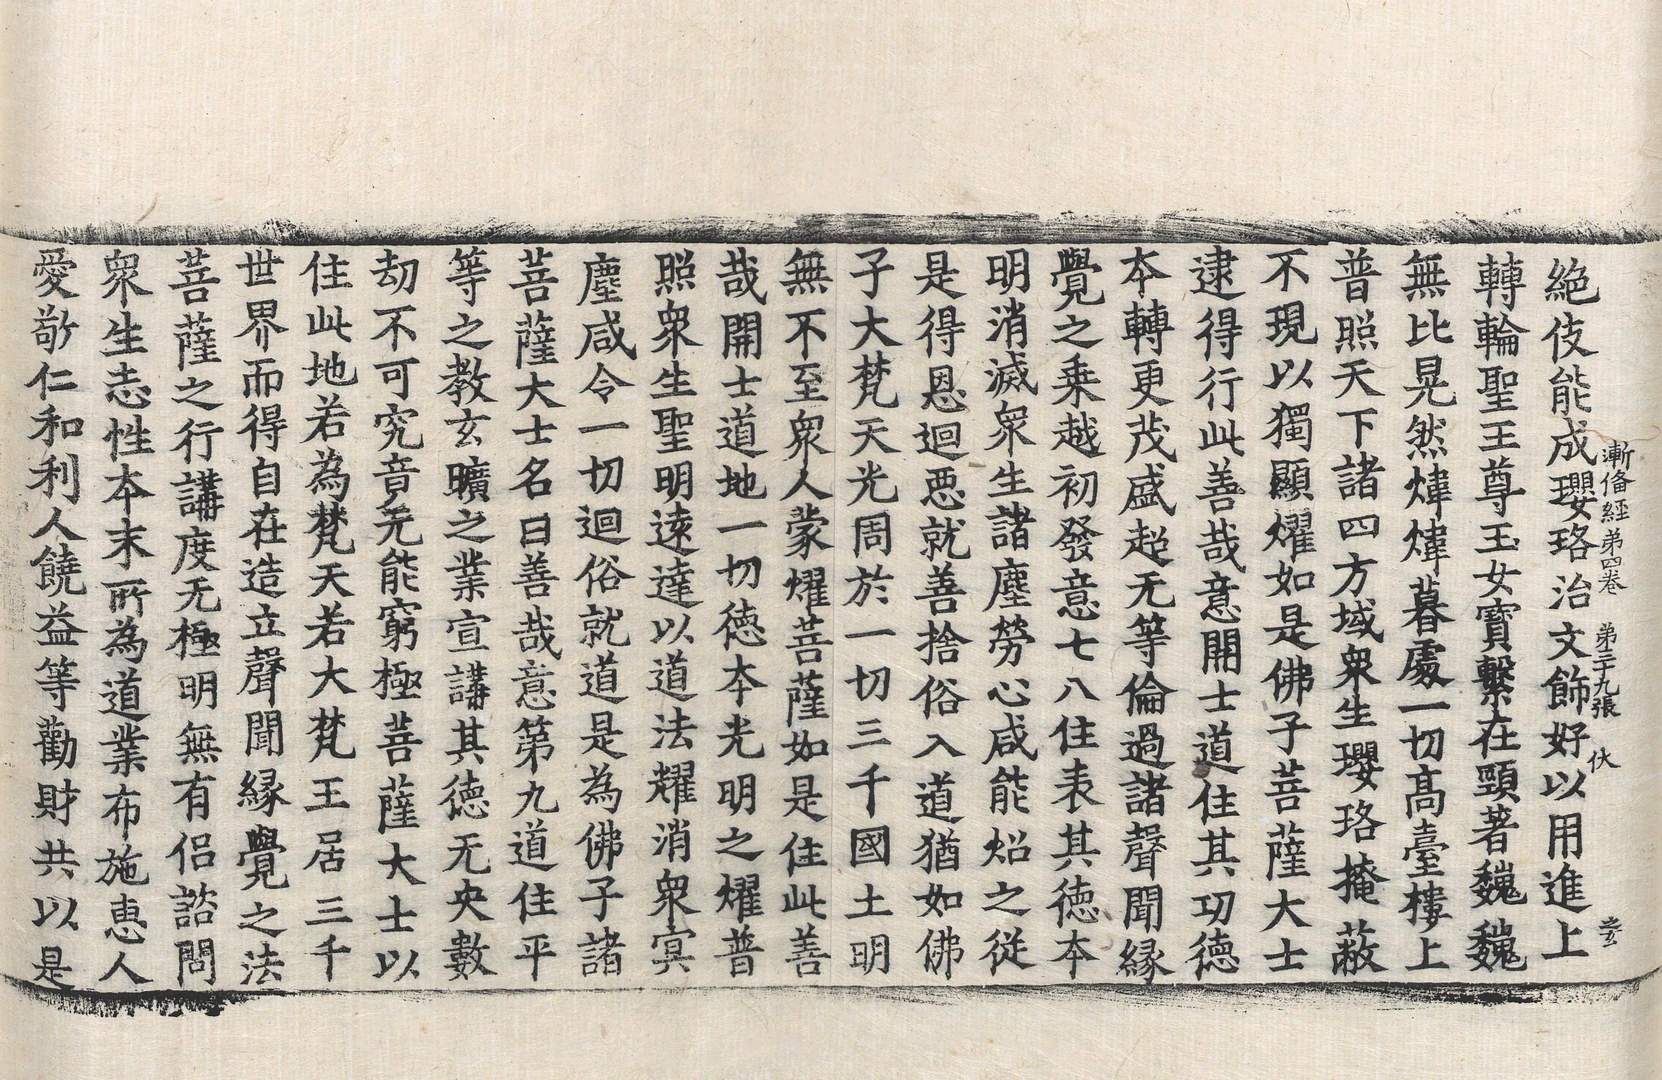 漸俻經第四卷 第三十九張 伏
絶伎能成瓔珞治文飾好以用進上
轉輪聖王尊玉女寶繫在頸著巍巍
無比晃然煒煒暮處一切髙臺樓上
普照天下諸四方域衆生瓔珞掩蔽
不現以獨顯燿如是佛子菩薩大士
逮得行此善哉意開士道住其功德
本轉更茂盛超无等倫過諸聲聞縁
覺之乗越初發意七八住表其德本
明消滅衆生諸塵勞心咸能炤之從
是得恩迴惡就善捨俗入道猶如佛
子大梵天光周於一切三千國土明
無不至衆人蒙燿菩薩如是住此善
哉開士道地一切德本光明之燿普
照衆生聖明遠達以道法耀消衆㝠
塵咸令一切迴俗就道是為佛子諸
菩薩大士名曰善哉意第九道住平
等之教玄曠之業宣講其德无央數
劫不可究音无能窮極菩薩大士以
住此地若為梵天若大梵王居三千
世界而得自在造立聲聞縁覺之法
菩薩之行講度无極明無有侣諮問
衆生志性本末所為道業布施惠人
愛敬仁和利人饒益等勸財共以是